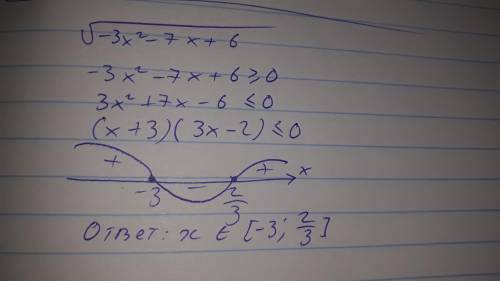 √-3x²-7x+6
-3x²-7x+6≥0
3x²+7x-6≤0
(x+3)(3x-2)≤0
+ - + x
-3 2/3
Ответ: x ∈ [-3; 2/3]